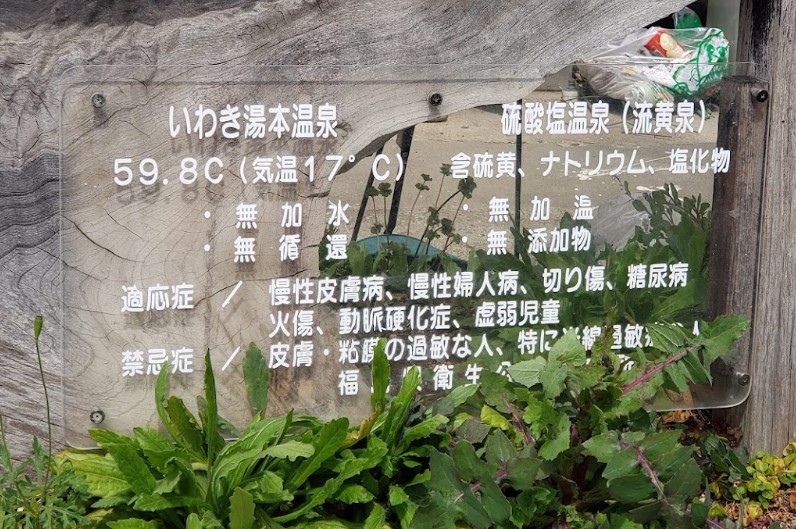 いわき湯本温泉 硫酸塩温泉(流黄泉)
59.8C(気温17°C)含硫黄、ナトリウム、塩化物
・無加水 ・無加温
・無循還 ・無添加物
適応症 / 慢性皮膚病、慢性婦人病、切り傷、糖尿病
火傷、動脈硬化症、虚弱児童
禁忌症 / 皮膚・粘膜の過敏な人、特に光線過敏
福 衛生